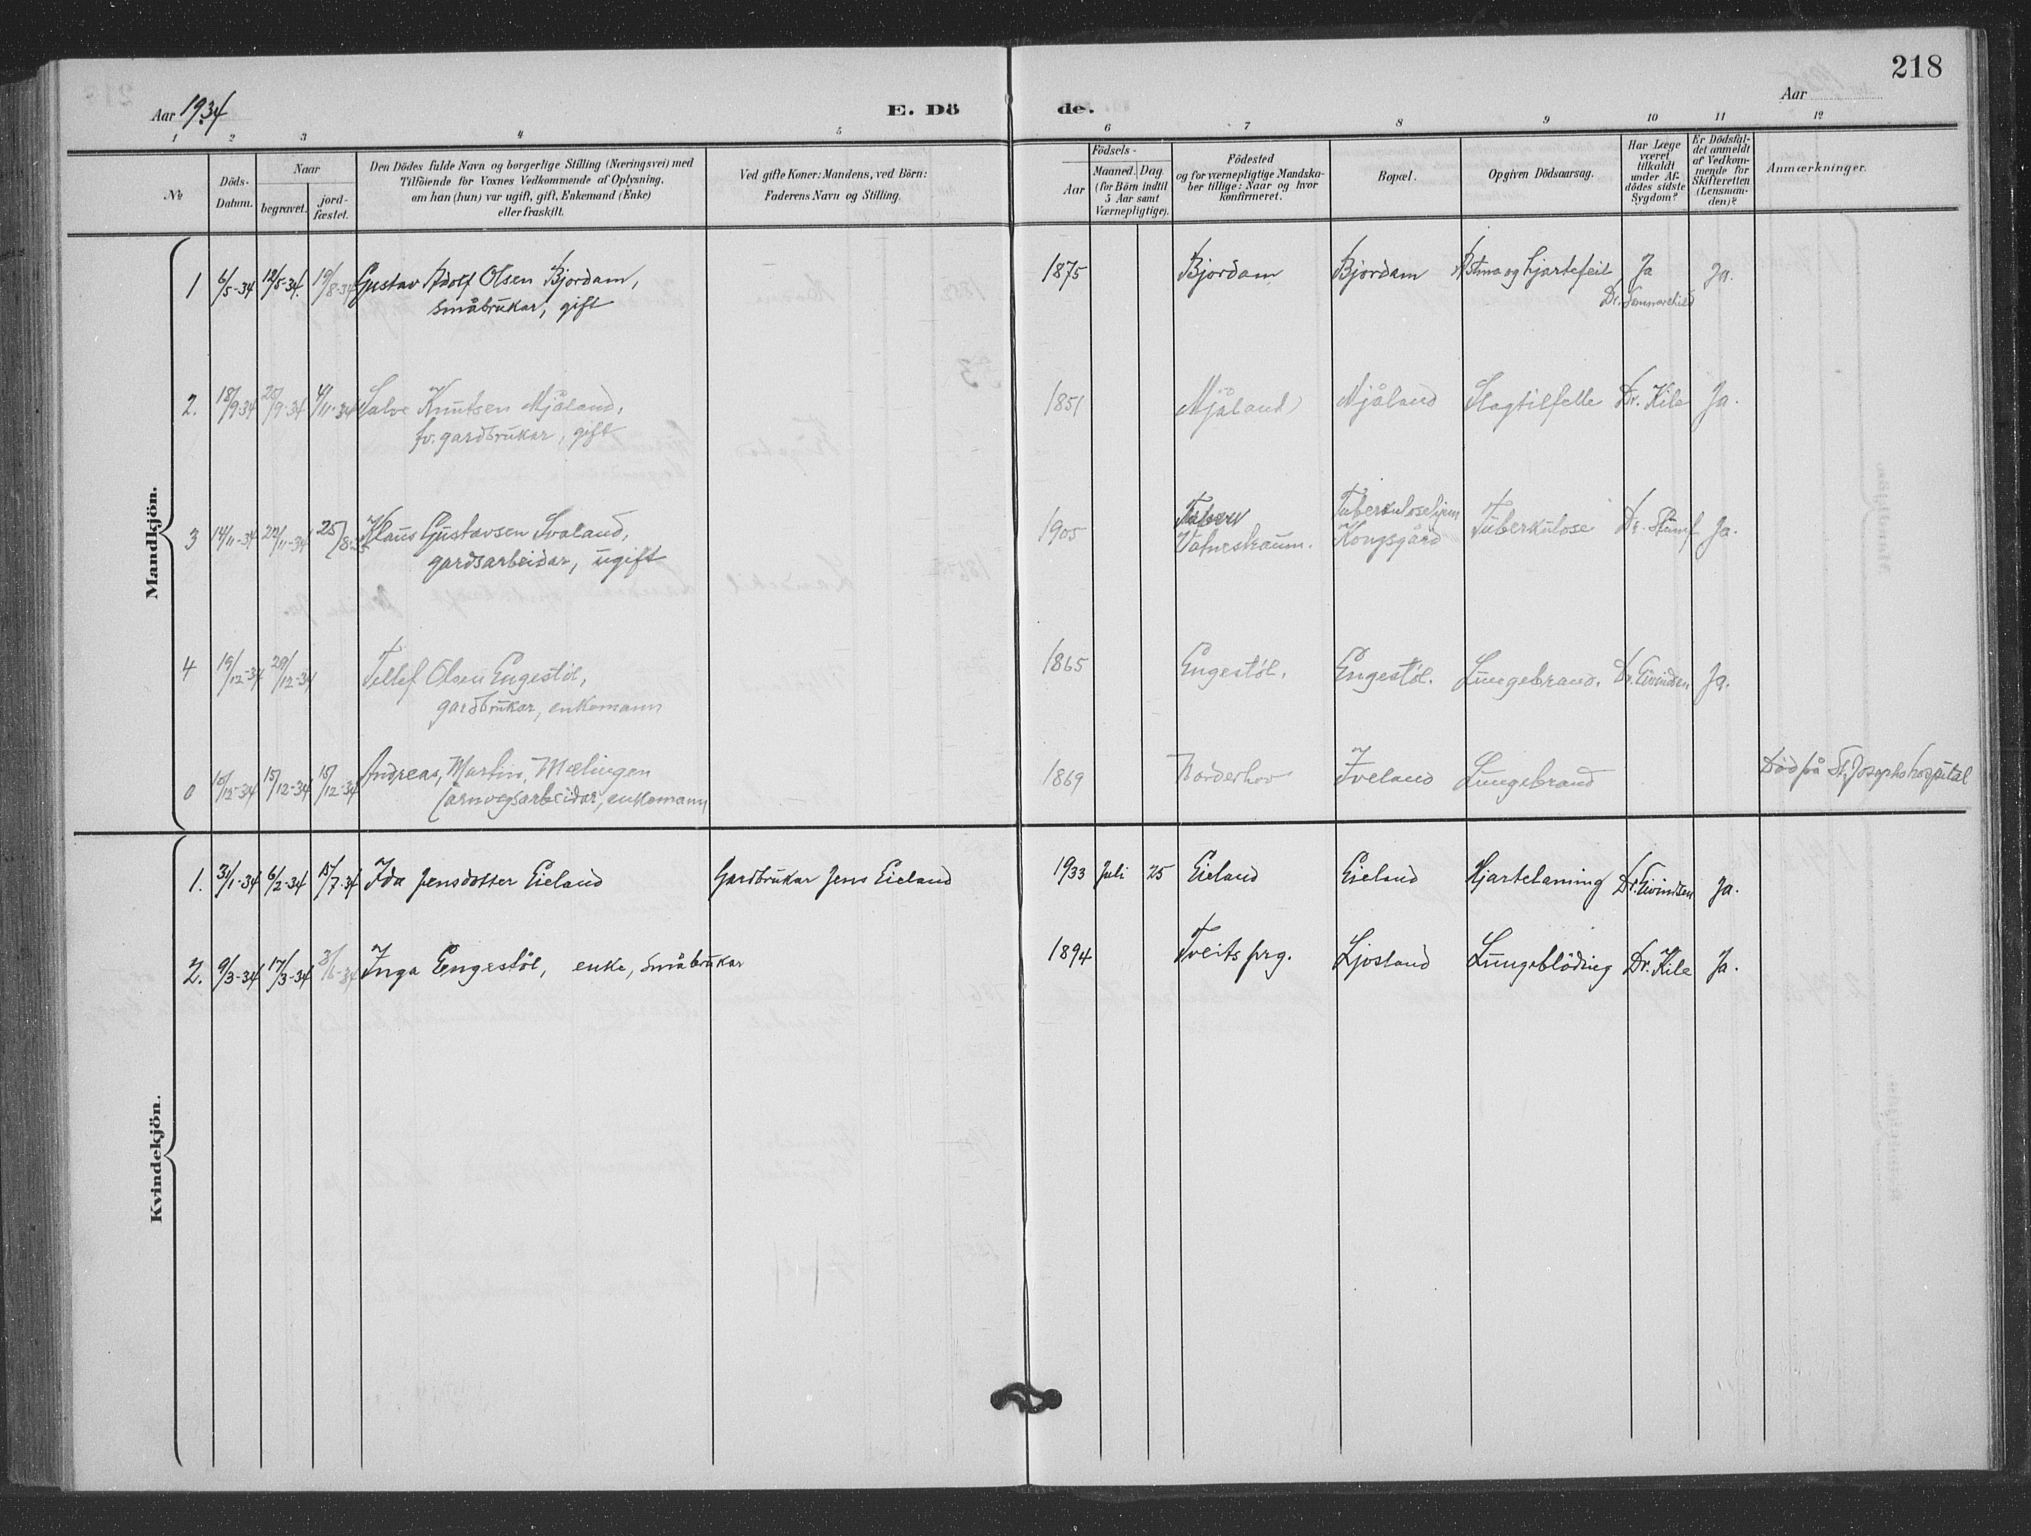 218
Aar 1934
E. Dö
de.
Aar
1 2 3 4 5 6 7 8 9 10 11 12
No
Döds-
Datum.
Naar
begravet.
jord-
fæstet.
Den Dödes fulde Navn og borgerlige Stilling (Næringsvei) med
Tilföiende for Voxnes Vedkommende af Oplysning,
om han (hun) var ugift, gift, Enkemand (Enke)
eller fraskilt.
Ved gifte Koner: Mandens, ved Börn:
Faderens Navn og Stilling.
Födsels-
Aar
Maaned. Dag.
(for Börn indtil
5 Aar samt
Værnepligtige).
Födested
og for værnepligtige Mandska-
ber tillige: Naar og hvor
konfirmeret.
Bopæl.
Opgiven Dödsaarsag.
Har Læge
været
tilkaldt
under Af-
dödes sidste
Sygdom?
Er Dödsfal-
det anmeldt
af Vedkom-
mende for
Skifteretten
(Lensman-
den)?
Anmærkninger.
Mandkjön.
1 6/5-34 12/5-34. 19/8-34 Gustav Adolf Olsen Bjordam, 1875 Bjordam Bjordam Astma og hjartefeil Ja Ja.
småbrukar, gift Dr.
2. 18/9-34 25/9-34 4/11-34 Salve Knutsen Mjåland, 1851 Mjåland Mjåland Slagtilfelle Dr. Kile Ja.
fv. gardbrukar, gift
3 14/11-34 22/11-34 25/8-35 Klaus Gustavsen Svaland, 1905 Vatnestraum. Tuberkulosehjem Tuberkulose Dr. Ja.
gardsarbeidar, ugift Kongsgård
4 19/12-34 29/12-34 Tellef Olsen Engestøl, 1865 Engestøl. Engestøl. Lungebrand. Dr. Eivindsen Ja.
gardbrukar, enkemann
0 10/12-34 15/12-34 15/12-34 Andreas, Martin, Mælingen 1869 Norderhov Iveland Lungebrand Død på St. Josephs hospital
jarnvegsarbeidar, enkemann
Kvindekjön.
1. 31/1-34 6/2-34 15/7-34 Ida Jensdotter Eieland Gardbrukar Jens Eieland 1933 Juli 25 Eieland Eieland Hjartelaming Dr. Eivindsen Ja.
2. 9/3-34 17/3-34 Inga Engestöl, enke, småbrukar 1894 Tveits prg. Ljosland Lungeblöding Dr. Kile Ja.